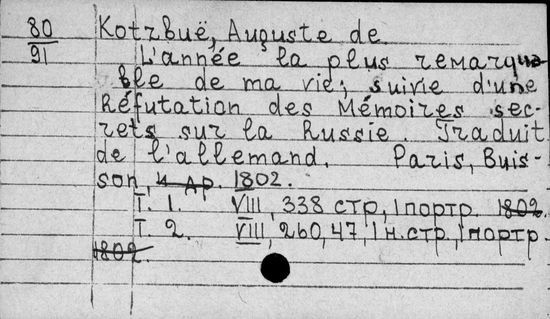 80
91
Kotzbuë, Auguste de
L'année la plus remarqua-
ble de ma vie; suivie d'une
Réfutation des Mémoires sec-
rets sur la Russie. Traduit
de l'allemand. Paris, Buis-
son, и др. 1802.
T. 1. VIII, 338 стр, 1 портр. 1802.
T. 2. VIII, 260, 47, 1 н. стр., 1 портр.
1802.